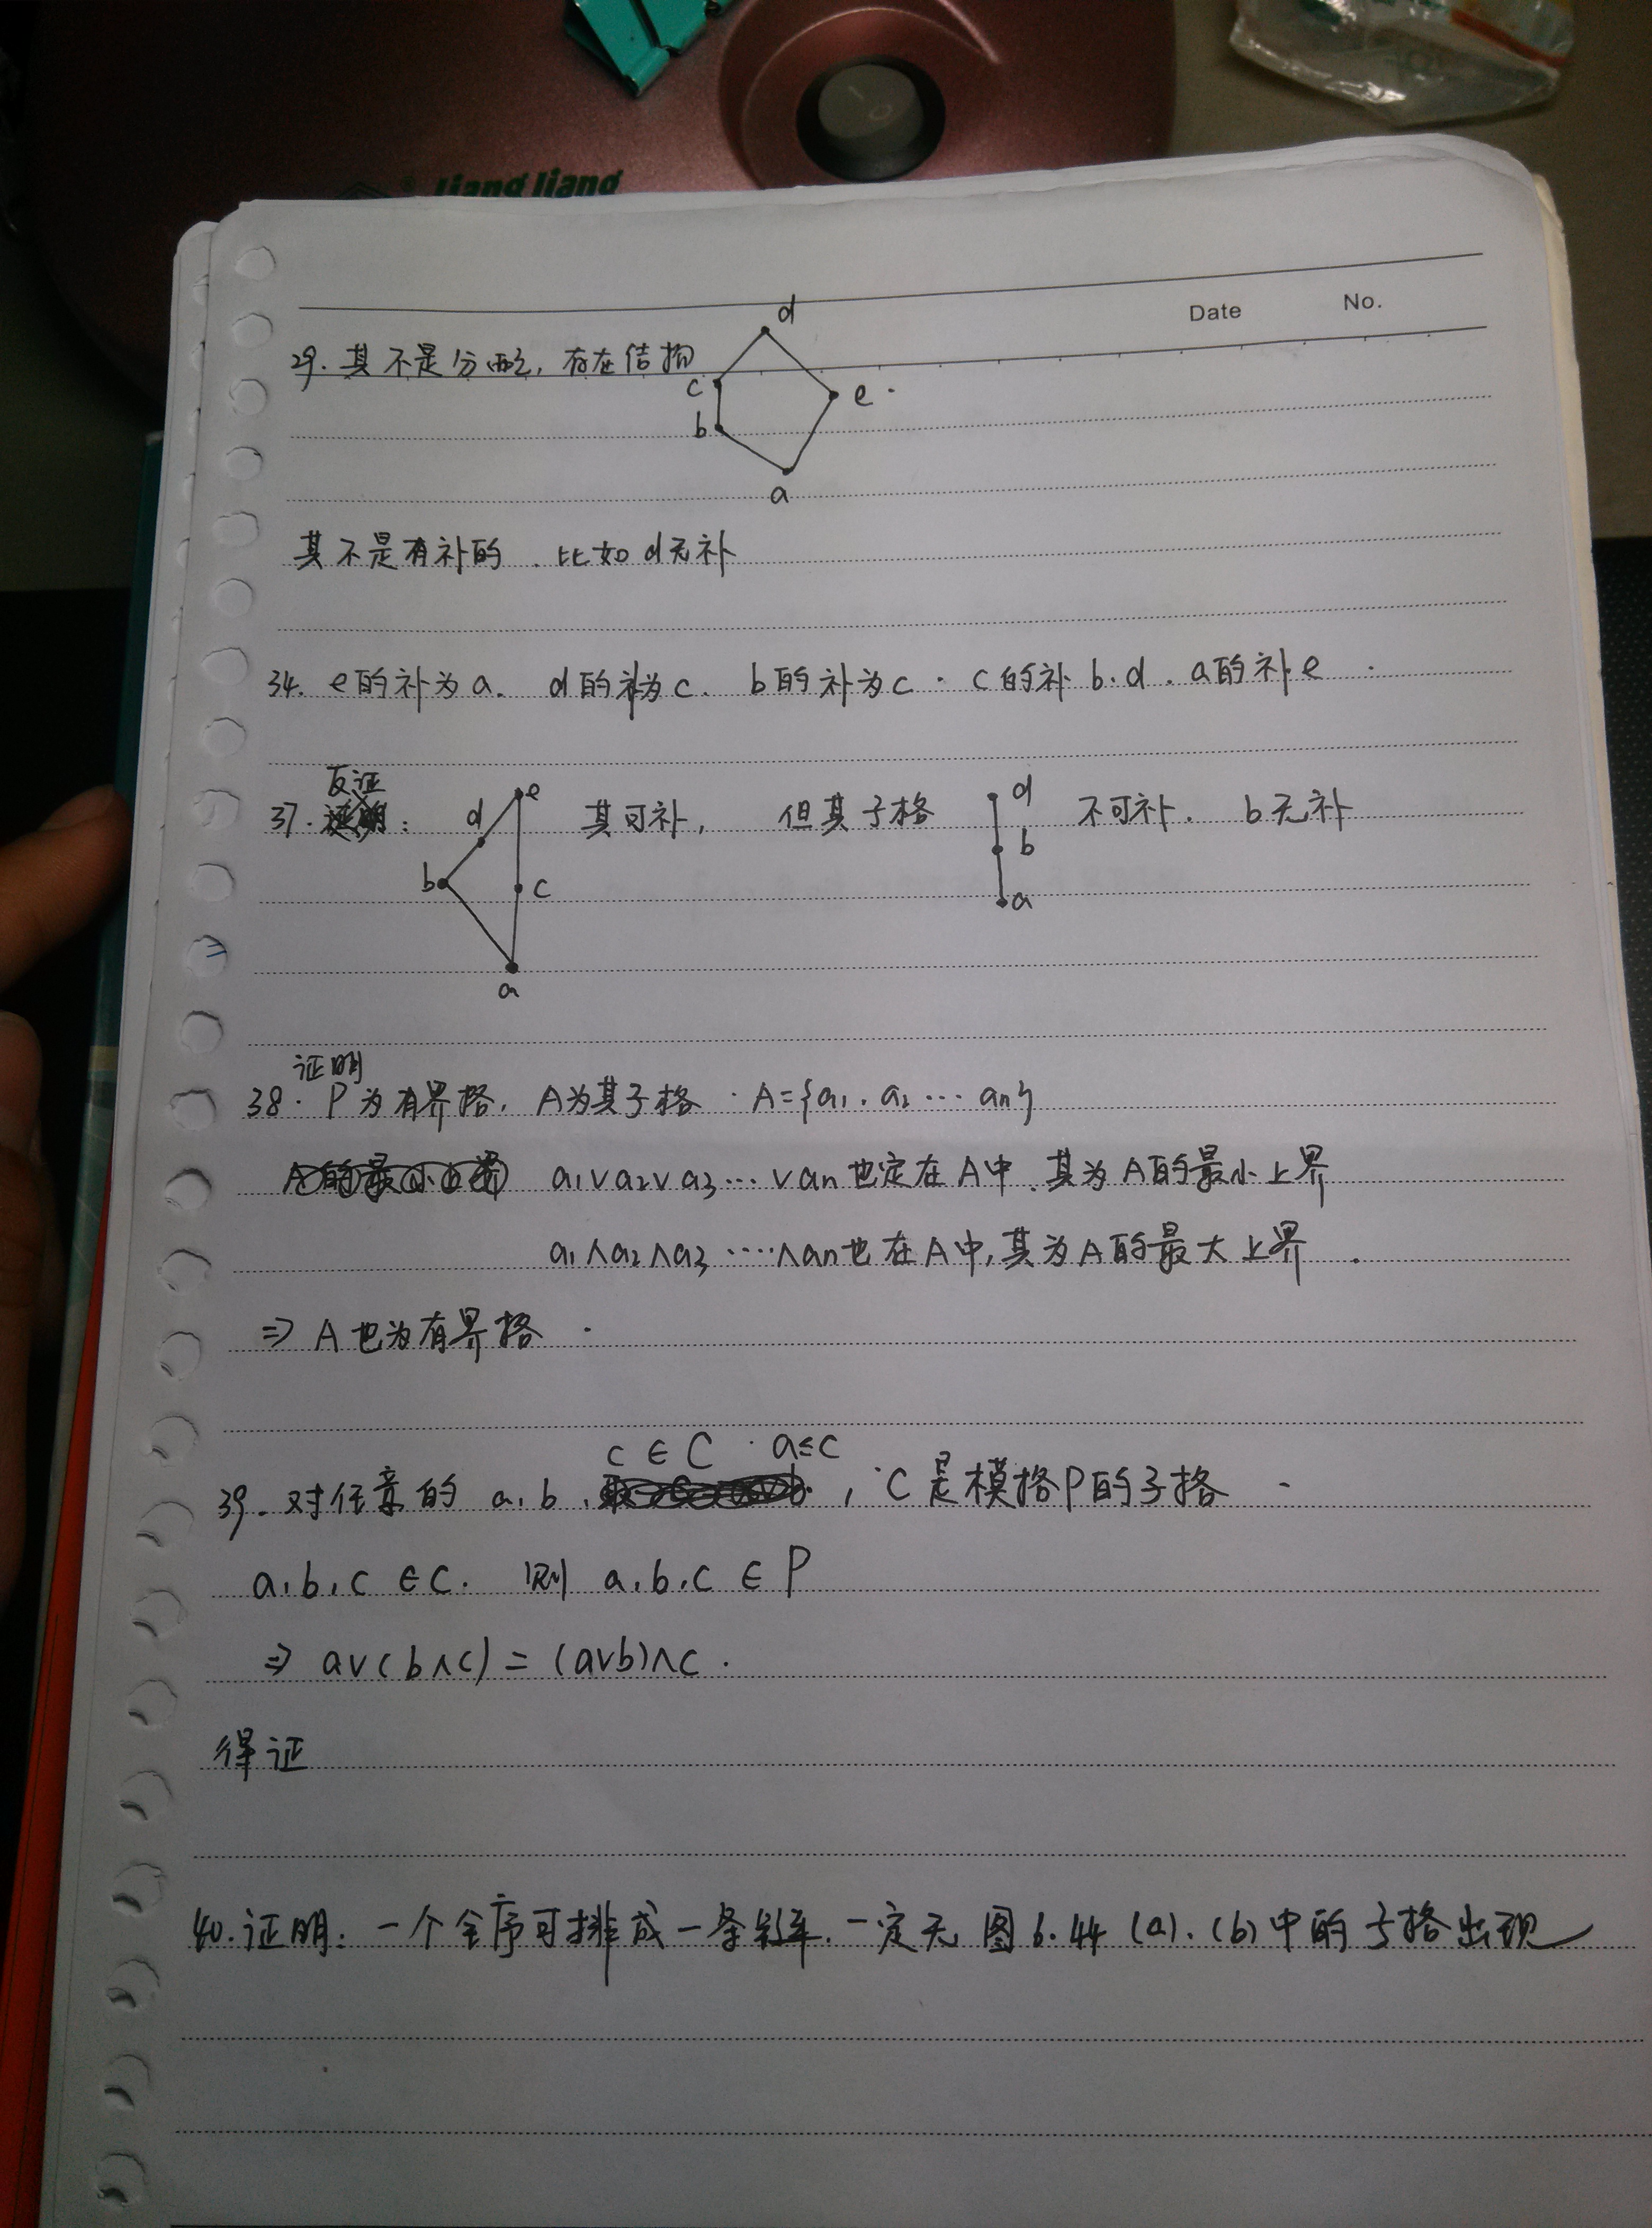 liang liang
Date No.
29. 其不是分配, 存在结构
d
c
e
b
a
其不是有补的. 比如d无补
34. e的补为a. d的补为c. b的补为c. c的补b.d. a的补e
反证
37. :
d
e
b
c
a
其可补, 但其子格
d
b
a
不可补. b无补
证明
38. P为有界格, A为其子格. A={a1, a2 ... an}
a1∨a2∨a3...∨an也定在A中, 其为A的最小上界
a1∧a2∧a3....∧an也在A中, 其为A的最大上界.
⇒ A也为有界格.
c∈C. a≤c
39. 对任意的 a, b, , C是模格P的子格.
a, b, c ∈C. 则 a, b, c ∈ P
⇒ a∨(b∧c) = (a∨b)∧c.
得证
40. 证明: 一个全序可排成一条, 一定无图6.44 (a). (b)中的子格出现